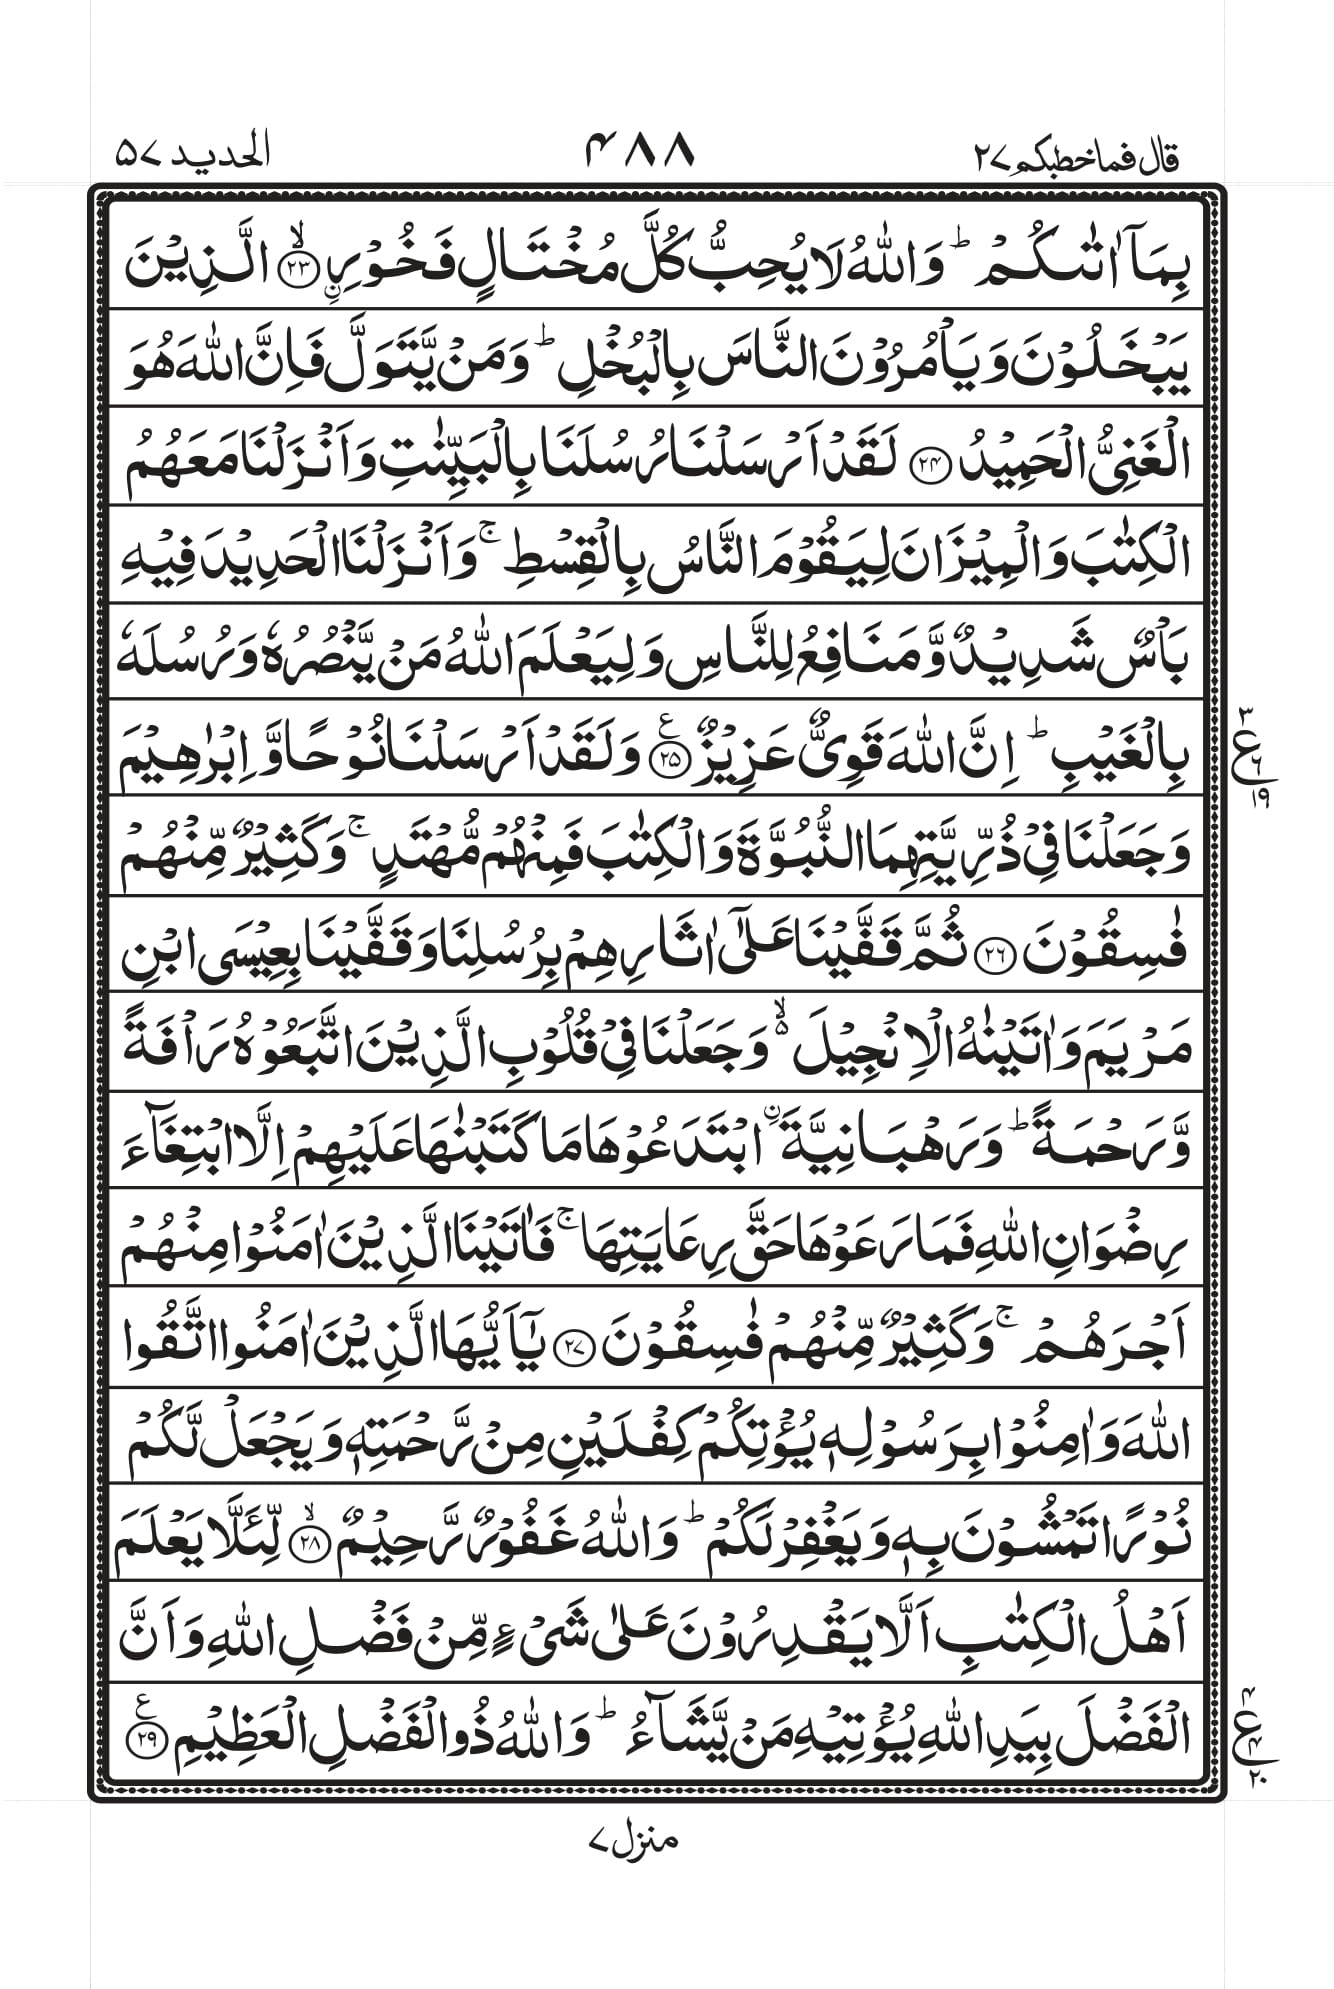 قال فما خطبكم ۲۷
۴۸۸
الحديد ۵۷
بِمَاۤ اٰتٰىكُمْ ؕ وَاللّٰهُ لَا يُحِبُّ كُلَّ مُخْتَالٍ فَخُوْرِ ۙ﴿۲۳﴾ ۨالَّذِيْنَ
يَبْخَلُوْنَ وَيَاْمُرُوْنَ النَّاسَ بِالْبُخْلِ ؕ وَمَنْ يَّتَوَلَّ فَاِنَّ اللّٰهَ هُوَ
الْغَنِىُّ الْحَمِيْدُ ﴿۲۴﴾ لَقَدْ اَرْسَلْنَا رُسُلَنَا بِالْبَيِّنٰتِ وَاَنْزَلْنَا مَعَهُمُ
الْكِتٰبَ وَالْمِيْزَانَ لِيَقُوْمَ النَّاسُ بِالْقِسْطِ ۚ وَاَنْزَلْنَا الْحَدِيْدَ فِيْهِ
بَاْسٌ شَدِيْدٌ وَّمَنَافِعُ لِلنَّاسِ وَلِيَعْلَمَ اللّٰهُ مَنْ يَّنْصُرُهٗ وَرُسُلَهٗ
بِالْغَيْبِ ؕ اِنَّ اللّٰهَ قَوِىٌّ عَزِيْزٌ ﴿۲۵﴾ ع وَلَقَدْ اَرْسَلْنَا نُوْحًا وَّاِبْرٰهِيْمَ
۳ ع ۶ ۱۹
وَجَعَلْنَا فِىْ ذُرِّيَّتِهِمَا النُّبُوَّةَ وَالْكِتٰبَ فَمِنْهُمْ مُّهْتَدٍ ۚ وَكَثِيْرٌ مِّنْهُمْ
فٰسِقُوْنَ ﴿۲۶﴾ ثُمَّ قَفَّيْنَا عَلٰٓى اٰثَارِهِمْ بِرُسُلِنَا وَقَفَّيْنَا بِعِيْسَى ابْنِ
مَرْيَمَ وَاٰتَيْنٰهُ الْاِنْجِيْلَ ۙ۬ وَجَعَلْنَا فِىْ قُلُوْبِ الَّذِيْنَ اتَّبَعُوْهُ رَاْفَةً
وَّرَحْمَةً ؕ وَرَهْبَانِيَّةَ ۨ ابْتَدَعُوْهَا مَا كَتَبْنٰهَا عَلَيْهِمْ اِلَّا ابْتِغَآءَ
رِضْوَانِ اللّٰهِ فَمَا رَعَوْهَا حَقَّ رِعَايَتِهَا ۚ فَاٰتَيْنَا الَّذِيْنَ اٰمَنُوْا مِنْهُمْ
اَجْرَهُمْ ۚ وَكَثِيْرٌ مِّنْهُمْ فٰسِقُوْنَ ﴿۲۷﴾ يٰۤاَيُّهَا الَّذِيْنَ اٰمَنُوا اتَّقُوا
اللّٰهَ وَاٰمِنُوْا بِرَسُوْلِهٖ يُؤْتِكُمْ كِفْلَيْنِ مِنْ رَّحْمَتِهٖ وَيَجْعَلْ لَّكُمْ
نُوْرًا تَمْشُوْنَ بِهٖ وَيَغْفِرْ لَكُمْ ؕ وَاللّٰهُ غَفُوْرٌ رَّحِيْمٌ ۙ﴿۲۸﴾ لِّئَلَّا يَعْلَمَ
اَهْلُ الْكِتٰبِ اَلَّا يَقْدِرُوْنَ عَلٰى شَىْءٍ مِّنْ فَضْلِ اللّٰهِ وَاَنَّ
الْفَضْلَ بِيَدِ اللّٰهِ يُؤْتِيْهِ مَنْ يَّشَآءُ ؕ وَاللّٰهُ ذُو الْفَضْلِ الْعَظِيْمِ ﴿۲۹﴾ ع
۴ ع ۴ ۲۰
منزل ۷